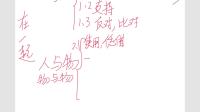 在一起
1.2支持
1.3反对，比对
人与物
物与物
2.1使用，凭借